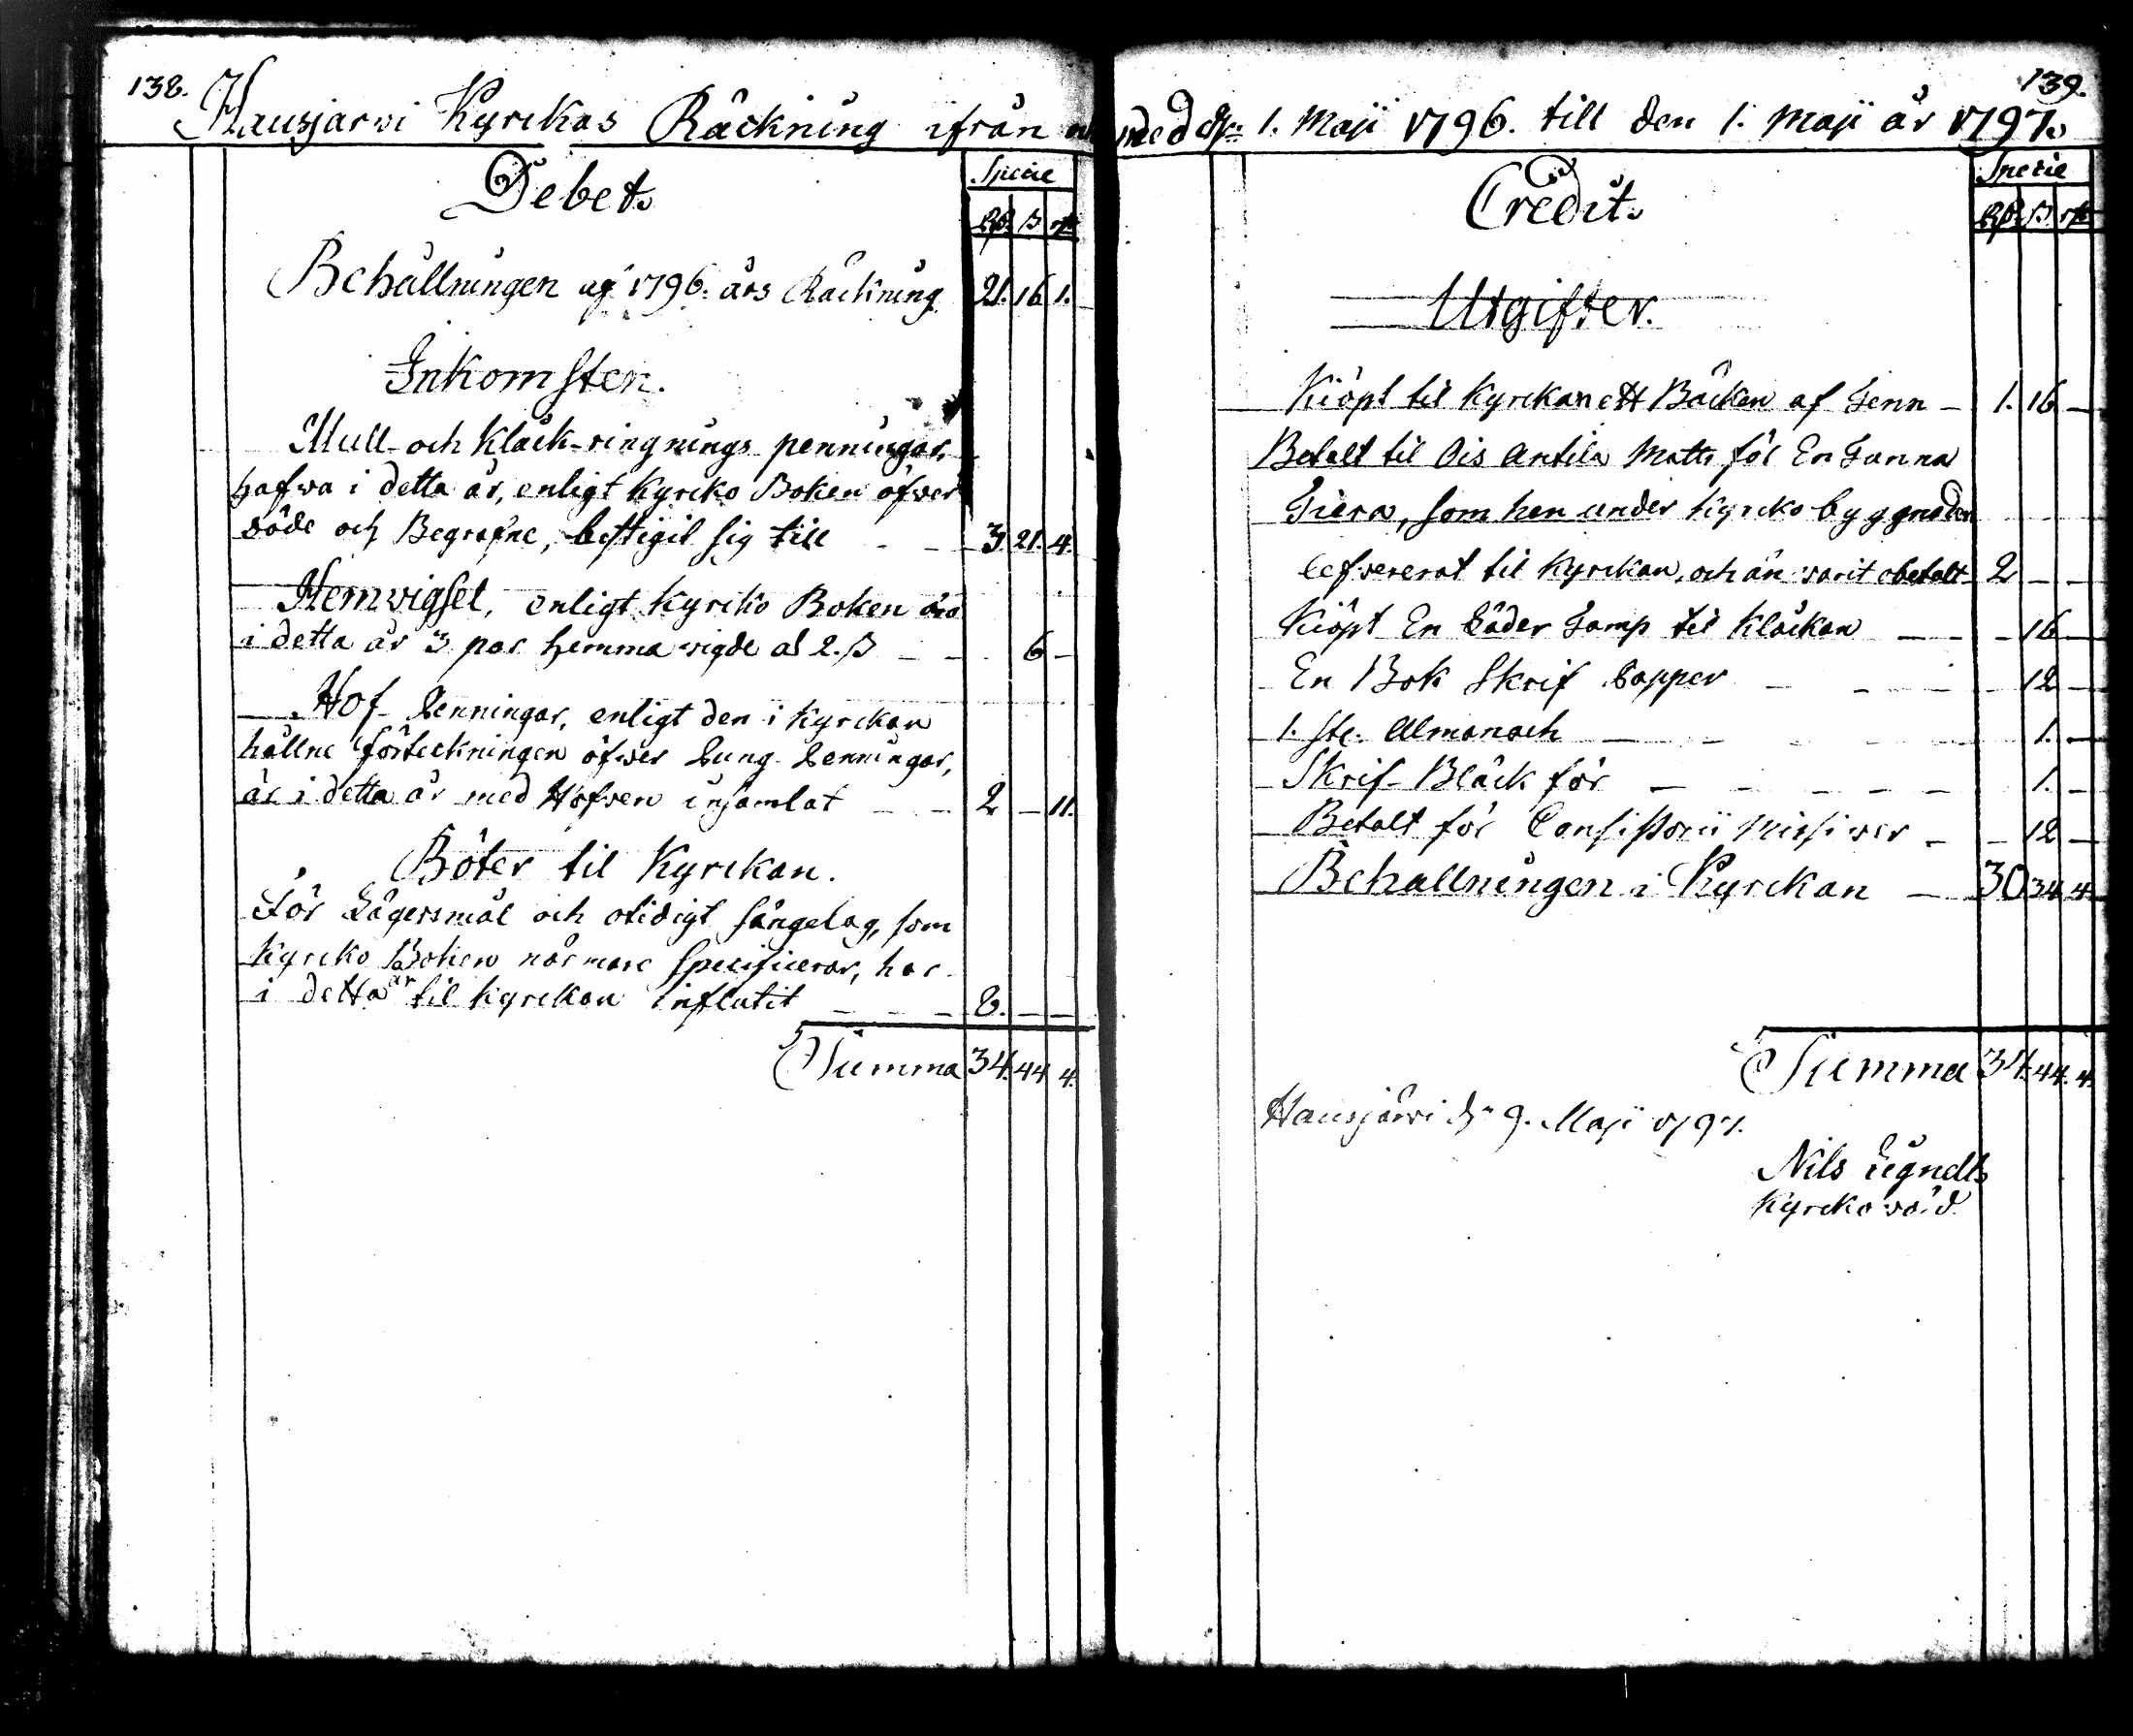 138.
Hausjärvi Kyrckas Räckning ifrån
Debet.
Specie
Rd. ß rst.
Behållningen af 1796. års Räckning 21. 16 1.
Inkomster.
Mull- och Kläck-ringnings penningar,
hafwa i detta år, enligt Kyrcko Boken öfwer
döde och Begrafne, bestigit sig till - - 3. 21. 4.
Hemwigsel, enligt Kyrcko Boken äro
i detta år 3 par hemma wigde a 2. ß - - 6 -
Hof Penningar, enligt den i Kyrckan
hållne förteckningen öfwer Pung Penningar,
är i detta år med Hofwen insamlat - - 2 - 11.
Böter til Kyrckan.
För Lägersmål och otidigt sängelag, som
Kyrcko Boken närmare specificerar, har
i detta år til Kyrckan influtit - - - 8. - -
Summa 34. 44 4.
139.
med d. 1. Maji 1796. till den 1. Maji år 1797.
Credit.
Specie
Rd. ß. rst.
Utgifter.
Kiöpt til Kyrckan ett Bäcken af Tenn - 1. 16 -
Betalt til Ois Antila Matts för En Tunna
Tiera, som han under Kyrcko byggnaden
lefwererat til Kyrckan, och än warit obetalt - 2 - -
Kiöpt En Läder Tamp til Kläckan - - - 16 -
En Bok Skrif Papper - - - - 12 -
1. ste. Almanach - - - - - 1. -
Skrif-Bläck för - - - - - 1. -
Betalt för Consistorii Missiver - - 12 -
Behållningen i Kyrckan - 30 34 4.
Summa 34. 44. 4.
Hausjärvi d. 9. Maji 1797.
Nils Lignell
Kyrcko värd.